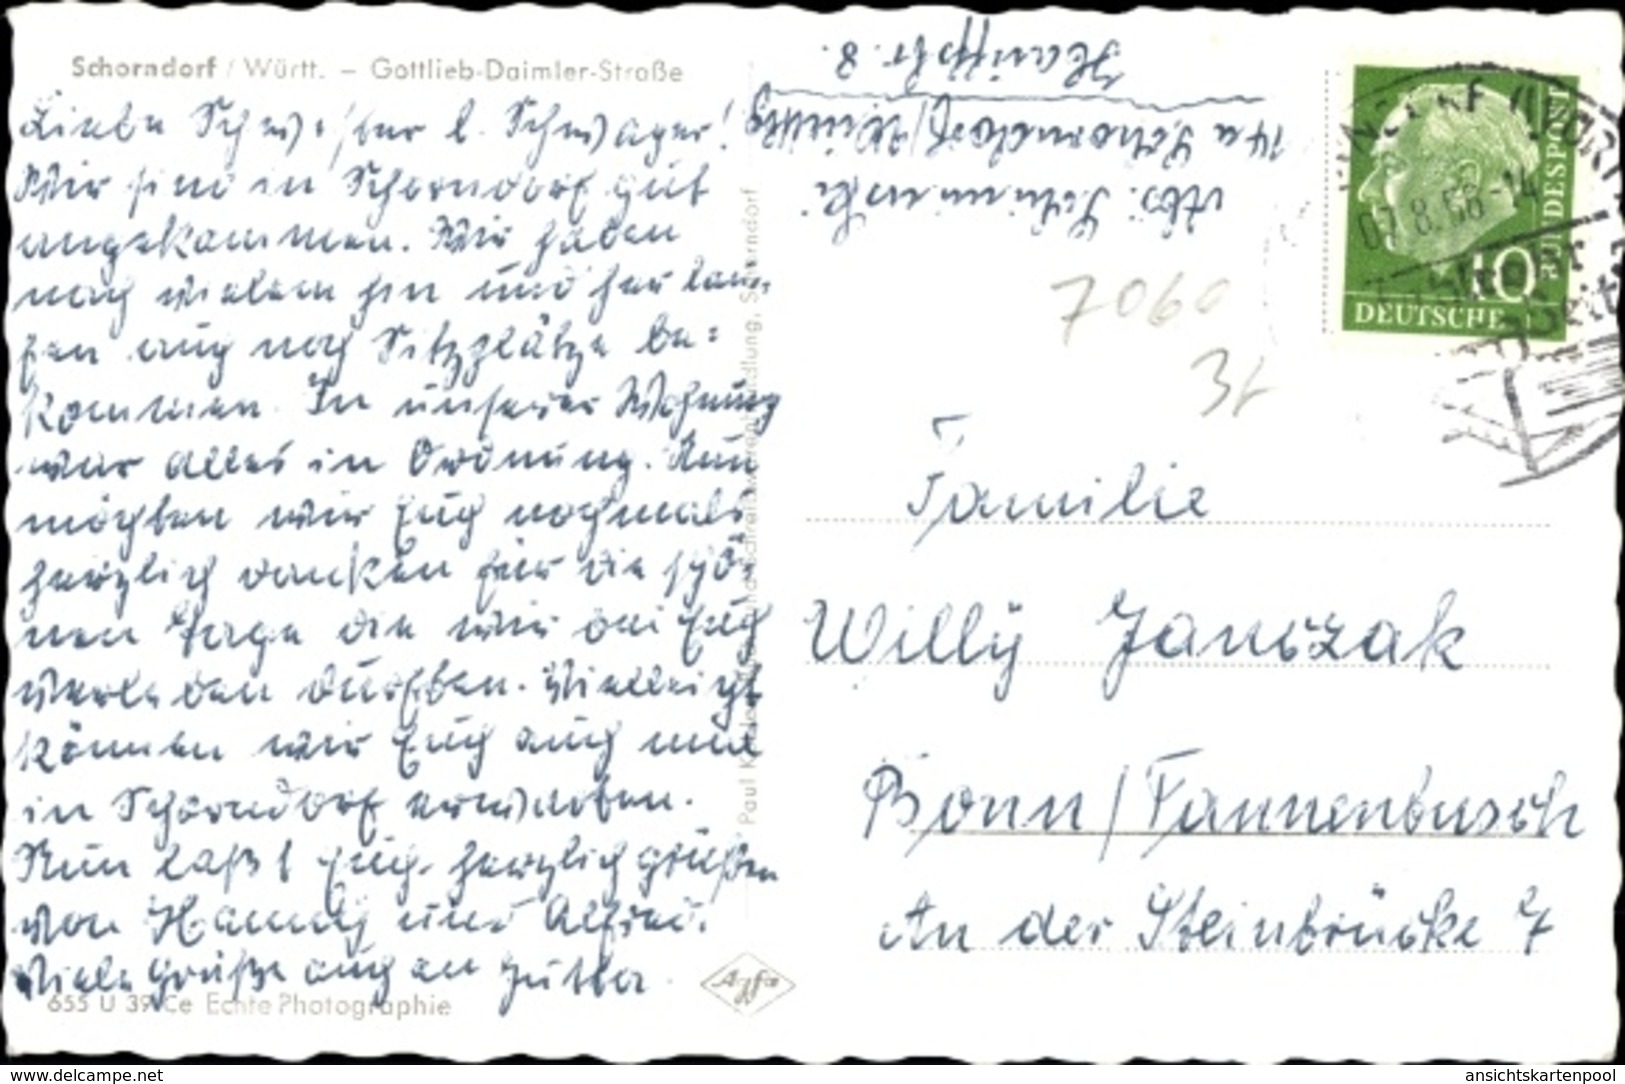 Schorndorf / Württ. – Gottlieb-Daimler-Straße
Liebe Schwester l. Schwager!
Wir sind in Schorndorf gut
angekommen. Wir haben
nach vielem hin und her lau-
fen auch noch Sitzplätze be=
kommen. In unserer Wohnung
war alles in Ordnung. Nun
möchten wir Euch nochmals
herzlich danken für die schö-
nen Tage die wir bei Euch
verleben durften. Vielleicht
können wir Euch auch mal
in Schorndorf erwarten.
Nun laßt Euch herzlich grüßen
von Hanny und Alfred.
Viele Grüße auch an
655 U 39 Ce Echte Photographie
Agfa
Abs:
14a Schorndorf/Württbg
Str. 8.
7060
DEUTSCHE
BUNDESPOST
10
07.8.58-14
Familie
Willÿ Janczak
Bonn/Tannenbusch
An der Steinbrücke 7
www.delcampe.net
ansichtskartenpool